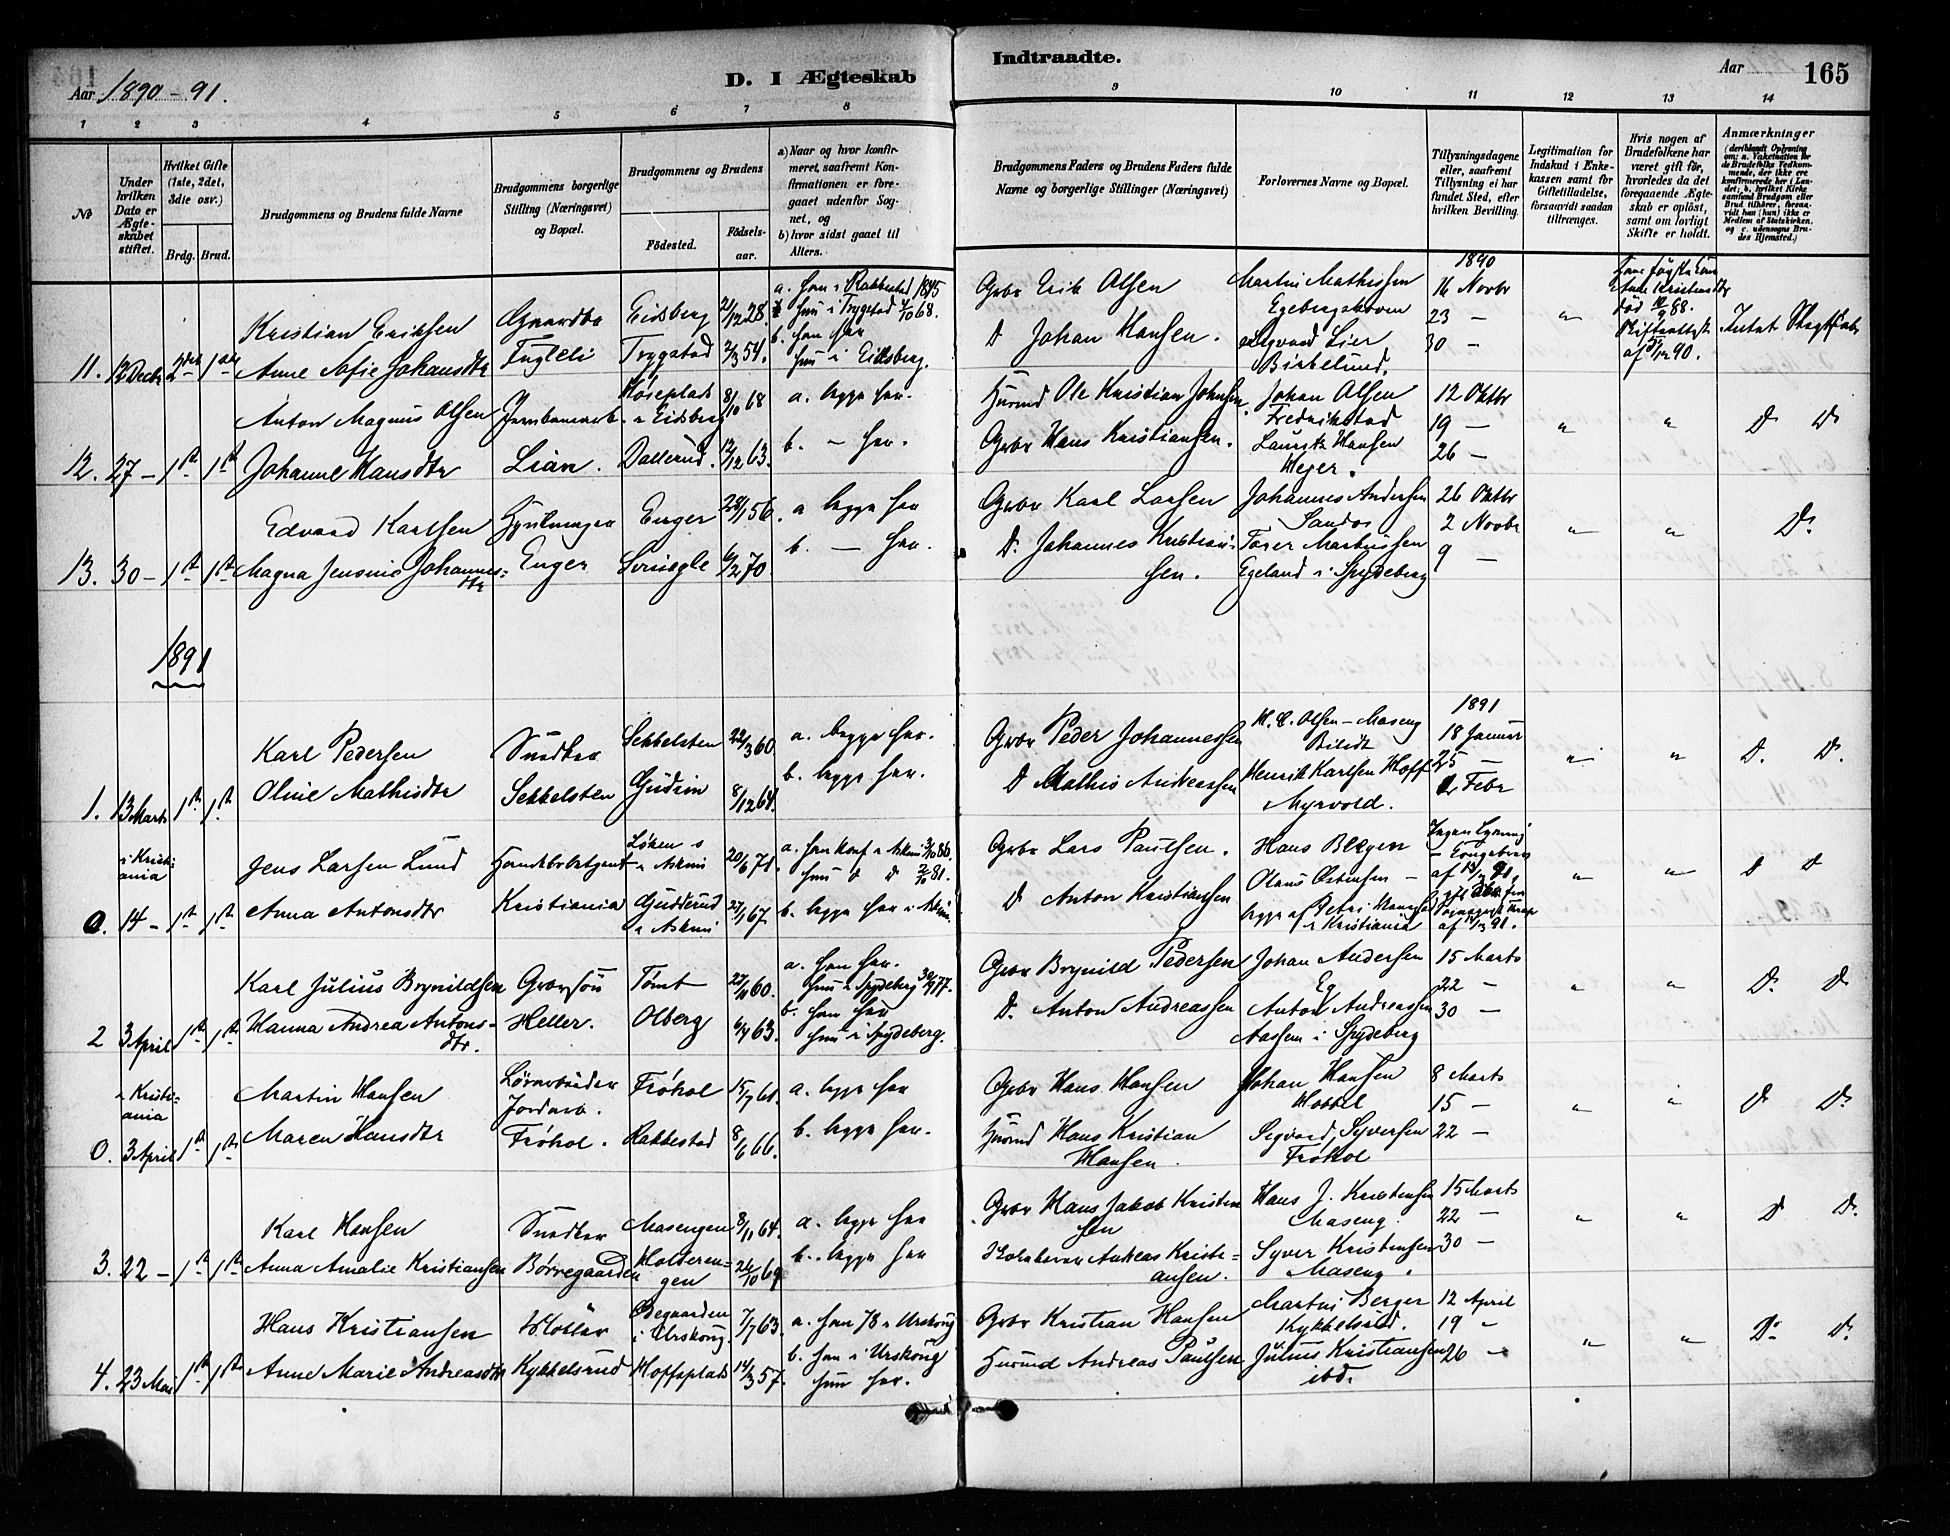 Aar 1890-91.
D. I Ægteskab Indtraadte.
Aar
165
1 2 3 4 5 6 7 8 9 10 11 12 13 14
No
Under hvilken Data er Ægteskabet stiftet.
Hvilket Gifte (1ste, 2det, 3die osv.)
Brdg. Brud.
Brudgommens og Brudens fulde Navne
Brudgommens borgerlige Stilling (Næringsvei) og Bopæl.
Brudgommens og Brudens
Födested. Födsels-aar.
a) Naar og hvor konfirmeret, saafremt Konfirmationen er foregaaet udenfor Sognet, og
b) hvor sidst gaaet til Alters.
Brudgommens Faders og Brudens Faders fulde Navne og borgerlige Stillinger (Næringsvei)
Forlovernes Navne og Bopæl.
Tillysningsdagene eller, saafremt Tillysning ei har fundet Sted, efter hvilken Bevilling.
Legitimation for Indskud i Enkekassen samt for Giftetilladelse, forsaavidt saadan tiltrænges.
Hvis nogen af Brudefolkene har været gift för, hvorledes da det foregaaende Ægteskab er oplöst, samt om lovligt Skifte er holdt.
Anmærkninger
(deriblandt Oplysning om: a. Vakcination for de Brudefolks Vedkommende, der ikke ere konfirmerede her i Landet; b. hvilket Kirkesamfund Brudgom eller Brud tilhörer, forsaavidt han (hun) ikke er Medlem af Statskirken, og c. udensogns Brudes Hjemsted.)
11. 13 Decbr 2det 1ste
Kristian Eriksen
Anne Sofie Johansdtr
Gaardbr
Fugleli
Eidsberg 21/12 28.
Trygstad 2/3 54.
a. han i Rakkestad 1845
hun i Trygstad 4/10 68.
b. han her
hun i Eidsberg.
Gbr Erik Olsen
D Johan Hansen.
Martin Mathissen
Egebergskoven
Sigvard Lier
Birkelund.
1890
16 Novbr
23 —
30 —
12. 27 — 1st 1st
Anton Magnus Olsen
Johanne Hansdtr
Lian.
i Eidsberg 8/10 68
Dallerud. 12/12 63.
a. begge her.
b. — her.
Husmd Ole Kristian Johnsen.
Gbr Hans Kristiansen.
Johan Olsen
Fredrikstad
Lauritz Hansen
12 Oktbr
19 —
26 —
" " D D
13. 30 — 1st 1st
Edvard Karlsen
Magna Jensine Johannesdtr
Enger
Enger 28/1 56.
6/2 70.
a begge her
b. — her.
Gbr Karl Larsen
D. Johannes Kristiansen.
Johannes Andersen
Sandos
Egeland i Spydeberg
26 Oktbr
2 Novbr
9 —
" " D.
1891
1. 13 Marts 1st 1st
Karl Pedersen
Oline Mathisdtr
Snedker
Sekkelsten
Sekkelsten 22/3 60
Gudim 8/12 64.
a. begge her.
b. begge her.
Gbr Peder Johannessen
D Mathis Andreassen
H. C. Olsen-Maseng
Henrik Karlsen Hoff
Myrvold.
1891
18 Januar
25 —
1 Febr
" " D. D.
i Kristiania
0. 14 — 1st 1st
Jens Larsen Lund
Anna Antonsdtr
Handelsbetjent
Kristiania
Løken s
i Askim 20/6 71.
Gudderud
i Askim 27/1 67.
a. han konf i Askim 3/10 86.
hun d d 2/10 81.
b. begge her i Askim.
Gbr Lars Paulsen.
D Anton Kristiansen
Hans Bergen
Olaus Østensen —
begge af
i Kristiania
" " D D
2 3 April 1st 1st
Karl Julius Brynildsen
Hanna Andrea Antonsdtr.
Gbrsøn
Heller.
Tømt 27/11 60.
Olberg 6/4 63.
a. han her.
hun i Spydeberg 30/9 77.
b. han her
hun i Spydeberg.
Gbr Brynild Pedersen
D. Anton Andreassen
Johan Andersen
Eg
Anton Andreassen
Aasen i Spydeberg
15 Marts
22 —
30 —
" " D. D
i Kristiania
0. 3 April 1st 1st
Martin Hansen
Maren Hansdtr
Frøhol.
Frøhol 15/7 61.
Rakkestad 8/6 66.
a. begge her
b. begge her.
Gbr Hans Hansen
Husmd Hans Kristian Hansen.
Johan Hansen
Sigvard Syversen
Frøhol
8 Marts
15 —
22 —
" " D D.
3. 22 — 1st 1st
Karl Hansen
Anna Amalie Kristiansen
Snedker
Børregaarden
Masengen 8/11 64.
Holderengen 26/10 69
a. begge her
b. begge her
Gbr Hans Jakob Kristensen
Andreas Kristiansen.
Hans J. Kristensen
Maseng.
Syver Kristensen
Maseng.
15 Marts
22 —
30 —
" " D D.
4. 23 Mai 1st 1st
Hans Kristiansen
Anne Marie Andreasdtr
Kykkelsrud
i Urskoug. 7/7 63.
Hoffsplads 14/3 57.
a. han 78 i Urskoug
b. han i Urskoug
hun her.
Gbr Kristian Hansen
Husmd Andreas Paulsen
Martin Berger
Kykkelsrud.
Julius Kristiansen
ibd.
12 April
19 "
26 —
" " D. D.